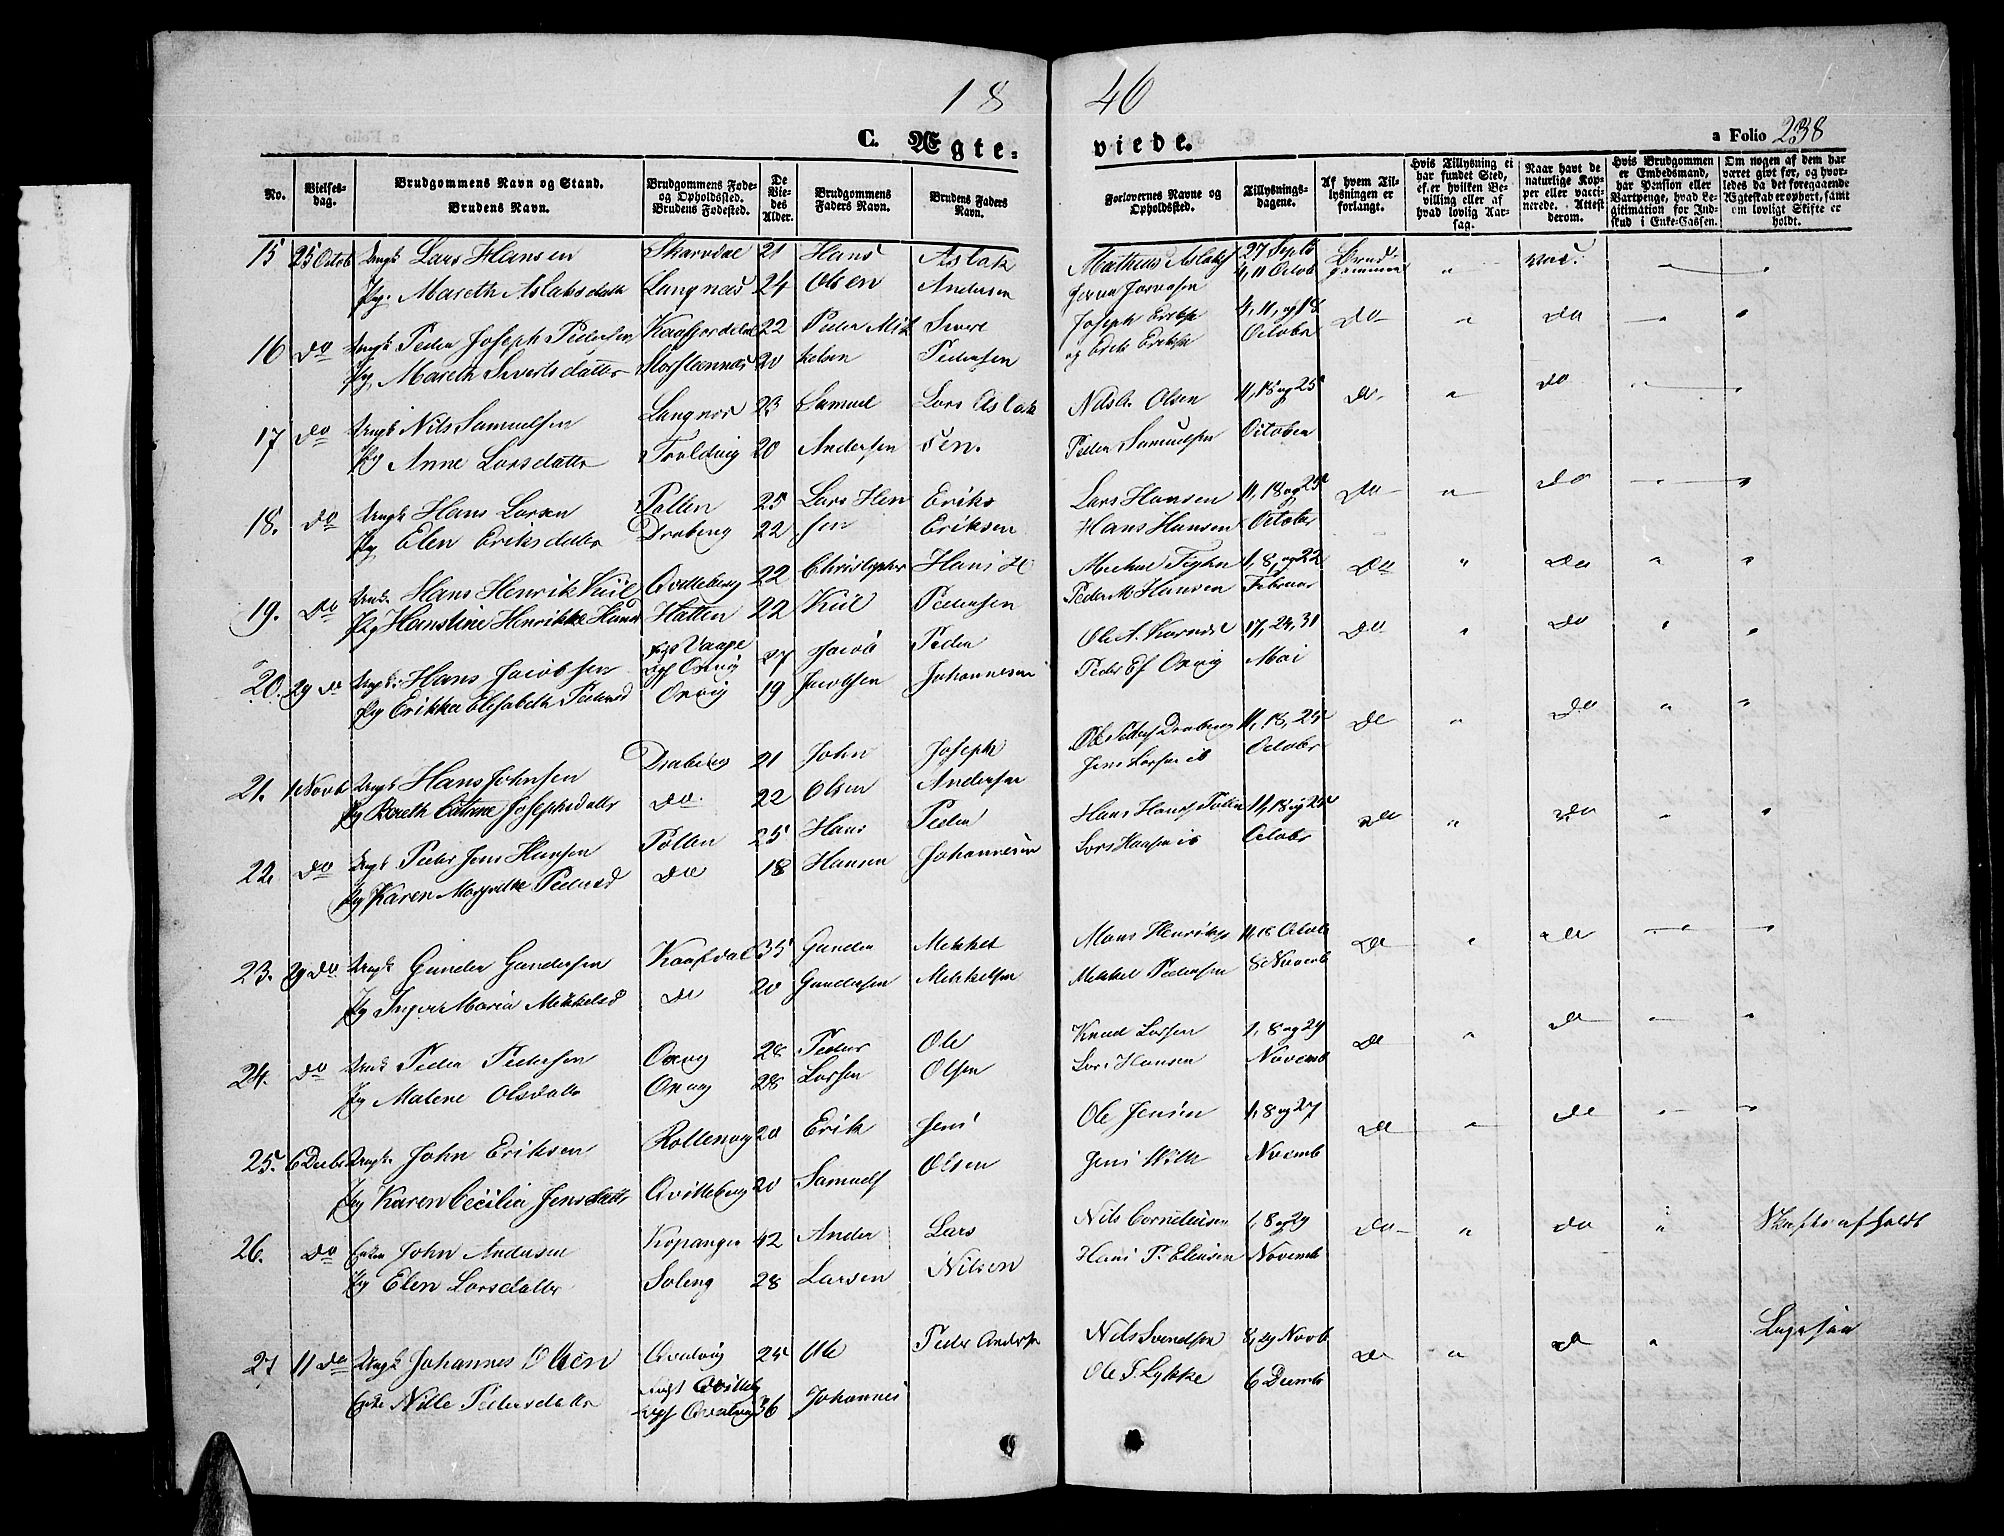 18 46
C. Ægte- viede.
a Folio 238
No.
Vielses-dag.
Brudgommens Navn og Stand. Brudens Navn.
Brudgommens Føde- og Opholdssted. Brudens Fødested.
De Viedes Alder.
Brudgommens Faders Navn.
Brudens Faders Navn.
Forlovernes Navne og Opholdssted.
Tillysnings-dagene.
Af hvem Tillysningen er forlangt.
Hvis Tillysning ei har fundet Sted, ef.er hvilken Bevilling eller af hvad lovlig Aarsag.
Naar havt de naturlige Kopper eller vaccinerede. Attest derom.
Hvis Brudgommen er Embedsmand, har Pension eller Vartpenge, hvad Legitimation for Indskud i Enke-Cassen.
Om nogen af dem har været givt før, og hvorledes da det foregaaende Ægteskab er ophørt, samt om lovligt Skifte er holdt.
15 25 Octob Ungk Lars Hansen Skarvdal 21 Hans Aslak Mathis Aslaks 27 Septb Brud- " vac. " "
Pig. Mareth Aslaksdatter Langnæs 24 Olsen Andersen 4, 11 Octob gommen
16 do Ungk Peder Joseph Pedersen Kaafjorddal 22 Peder Mik Sivert Joseph Eriks 4, 11, og 18 do " do " "
Pig Mareth Sivertsdatter Storslannæs 20 kelsen Pedersen og Erik Eriks Octobr
17 do Ungk Nils Samuelsen Langnæs 23 Samuel Lars Aslak Nils Olsen 11, 18 og 25 do " do " "
Pig Anne Larsdatter Troldvig 20 Andersen sen. Peder Samuelsen October
18. do Ungk Hans Larsen Pollen 25 Lars Han Eriks Lars Hansen 11, 18 og 25 do " do " "
Pig Elen Eriksdatter Draberg 22 sen Eriksen Hans Hansen October
19. do Ungk Hans Henrik Kiil Qvitteberg 22 Christopher Hans H Michel 1, 8, og 22 do " do " "
Pig Hanstine Henrikke Hans Hatten 22 Kiil Pedersen Peder M Hansen Februar
20. 29 do Ungk Hans Jacobsen Vaage 27 Jacob Peder Ole A. 17, 24, 31 do " do " "
Pig Erikka Elisabeth Pedersd Oxvig 19 Jacobsen Johannesen Peder Ef Oxvig Mai
21. 1 Novb Ungk Hans Johnsen Draberg 21 John Joseph Ole Peders Draberg 11, 18, 25 do " do " "
Pig Bereth Catrine Josephsdatter do. 22 Olsen Andersen Jens Larsen ib Octobr
22. do Ungk Peder Jens Hansen Pollen 25 Hans Peder Hans Hans Pollen 11, 18 og 25 do " do " "
Pig Karen Margrethe Pedersd do 18 Hansen Johannesen Lars Hansen ib Octobr
23. 29 do Ungk Gunder Gundersen Kaafdal 35 Gunder Mikkel Mons Henriks 11, 18 Octob do " do " "
Pig Inger Maria Mikkelsd do 20 Gundersen Mikkelsen Mikkel Pedersen 8 Novemb
24. do Ungk Peder Pedersen Oxvig 28 Peder Ole Knud Larsen 1, 8 og 29 do " do " "
Pig Malene Olsdatter Oxvig 28 Larsen Olsen Lars Hansen Novemb
25. 6 Decbr Ungk John Eriksen Kollevog 20 Erik Jens Ole Jensen 1, 8 og 27 do " do " "
Pig Karen Cecilia Jensdatter Qvitteberg 20 Samuels Olsen Jens Novemb
26. do Enkem John Andersen Kopangen 42 Ander Lars Nils Cornelius 1, 8 og 29 do " do " Skifte afholdt
Pig Elen Larsdatter Soleng 28 Larsen Nilsen Hans P. Novemb
27 11 do Ungk Johannes Olsen Qvalvig 25 Ole Peder Anders Nils Svendsen 8, 29 Novb do " do "
Enke Nille Pedersdatter Qvalvig 36 Johannes Ole T. Lykke 6 Decmb